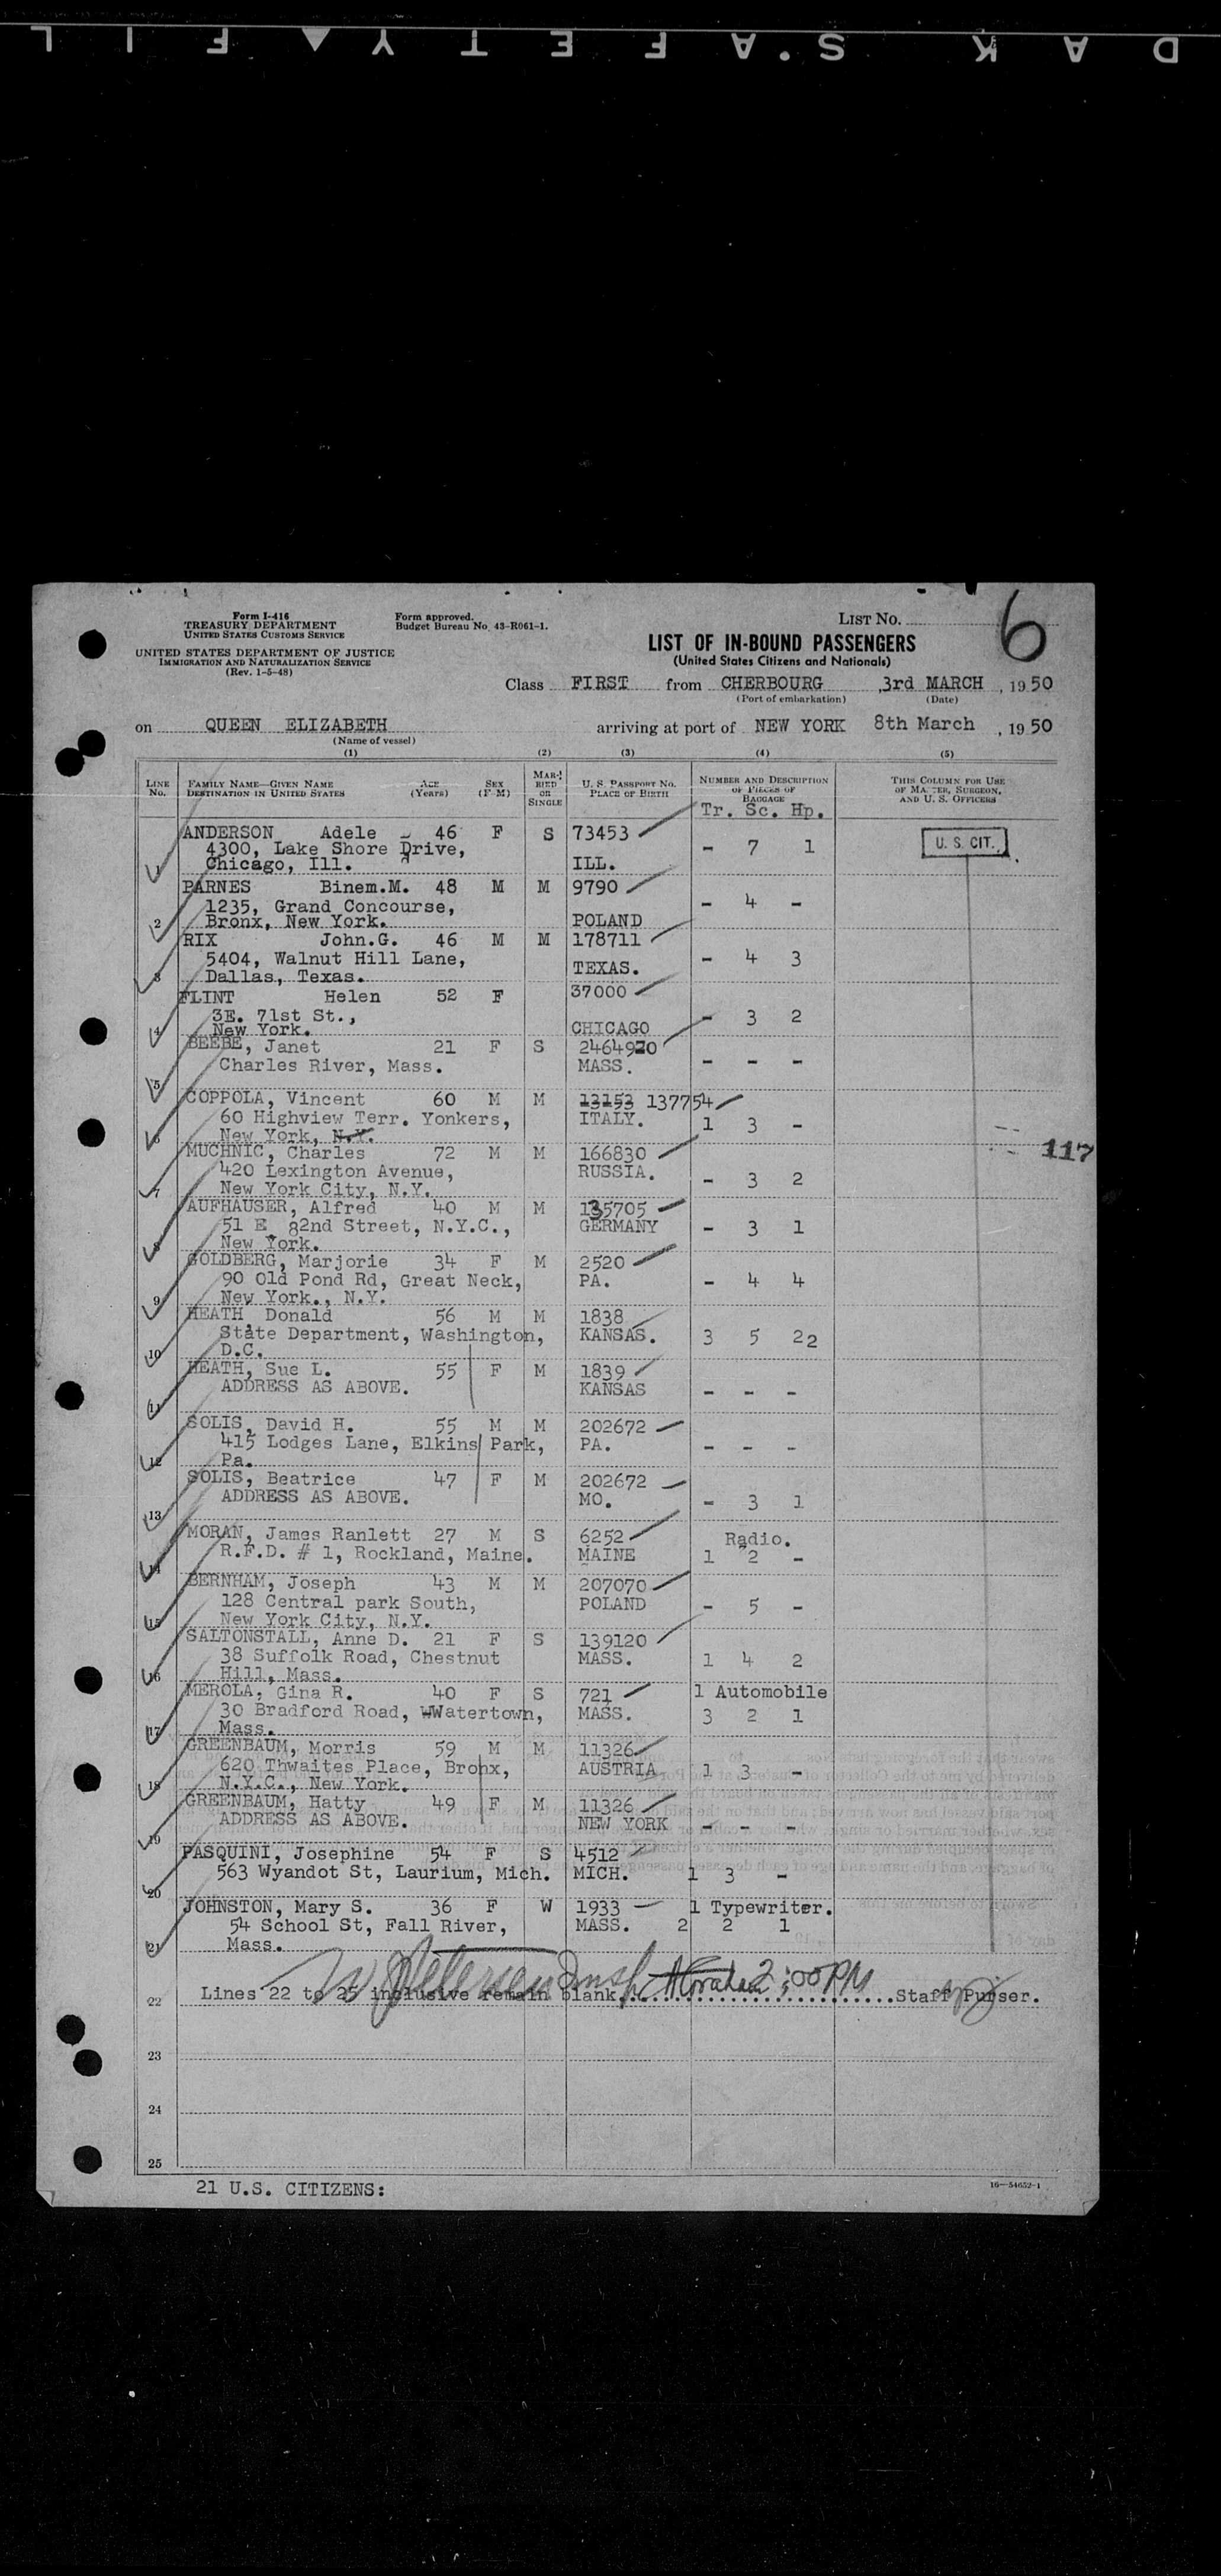 DAK S.A FETY FIL
Form I-416
TREASURY DEPARTMENT
UNITED STATES CUSTOMS SERVICE
UNITED STATES DEPARTMENT OF JUSTICE
IMMIGRATION AND NATURALIZATION SERVICE
(Rev. 1-5-48)
Form approved.
Budget Bureau No. 43-R061-1.
LIST NO. 6
LIST OF IN-BOUND PASSENGERS
(United States Citizens and Nationals)
Class FIRST from CHERBOURG ,3rd MARCH , 1950
(Port of embarkation) (Date)
on QUEEN ELIZABETH arriving at port of NEW YORK 8th March , 1950
(Name of vessel)
(1) (2) (3) (4) (5)
LINE No. FAMILY NAME—GIVEN NAME DESTINATION IN UNITED STATES AGE (Years) SEX (F-M) MARRIED OR SINGLE U. S. PASSPORT NO. PLACE OF BIRTH NUMBER AND DESCRIPTION OF PIECES OF BAGGAGE THIS COLUMN FOR USE OF MASTER, SURGEON, AND U. S. OFFICERS
Tr. Sc. Hp.
ANDERSON Adele 46 F S 73453
4300, Lake Shore Drive, - 7 1 U. S. CIT.
1 Chicago, Ill. ILL.
BARNES Binem.M. 48 M M 9790
1235, Grand Concourse, - 4 -
2 Bronx, New York. POLAND
RIX John.G. 46 M M 178711
5404, Walnut Hill Lane, - 4 3
3 Dallas, Texas. TEXAS.
FLINT Helen 52 F 37000
3E. 71st St., - 3 2
4 New York. CHICAGO
BEEBE, Janet 21 F S 2464920
Charles River, Mass. MASS. - - -
5
COPPOLA, Vincent 60 M M 13153 137754
60 Highview Terr. Yonkers, ITALY. 1 3 -
6 New York, N.Y.
MUCHNIC, Charles 72 M M 166830
420 Lexington Avenue, RUSSIA. - 3 2
7 New York City, N.Y.
117
AUFHAUSER, Alfred 40 M M 135705
51 E 82nd Street, N.Y.C., GERMANY - 3 1
8 New York.
GOLDBERG, Marjorie 34 F M 2520
90 Old Pond Rd, Great Neck, PA. - 4 4
9 New York., N.Y.
HEATH, Donald 56 M M 1838
State Department, Washington, KANSAS. 3 5 22
10 D.C.
HEATH, Sue L. 55 F M 1839
ADDRESS AS ABOVE. KANSAS - - -
11
SOLIS, David H. 55 M M 202672
415 Lodges Lane, Elkins Park, PA. - - -
12 Pa.
SOLIS, Beatrice 47 F M 202672
ADDRESS AS ABOVE. MO. - 3 1
13
MORAN, James Ranlett 27 M S 6252 Radio.
R.F.D. # 1, Rockland, Maine. MAINE 1 2 -
14
BERNHAM, Joseph 43 M M 207070
128 Central park South, POLAND - 5 -
15 New York City, N.Y.
SALTONSTALL, Anne D. 21 F S 139120
38 Suffolk Road, Chestnut MASS. 1 4 2
16 Hill, Mass.
MEROLA, Gina R. 40 F S 721 1 Automobile
30 Bradford Road, WWatertown, MASS. 3 2 1
17 Mass.
GREENBAUM, Morris 59 M M 11326
620 Thwaites Place, Bronx, AUSTRIA 1 3 -
18 N.Y.C., New York.
GREENBAUM, Hatty 49 F M 11326
ADDRESS AS ABOVE. NEW YORK - - -
19
PASQUINI, Josephine 54 F S 4512
563 Wyandot St, Laurium, Mich. MICH. 1 3 -
20
JOHNSTON, Mary S. 36 F W 1933 1 Typewriter.
54 School St, Fall River, MASS. 2 2 1
21 Mass.
2:00 PM
22 Lines 22 to 25 inclusive remain blank..........................Staff Purser.
23
24
25
21 U.S. CITIZENS:
16—54652-1